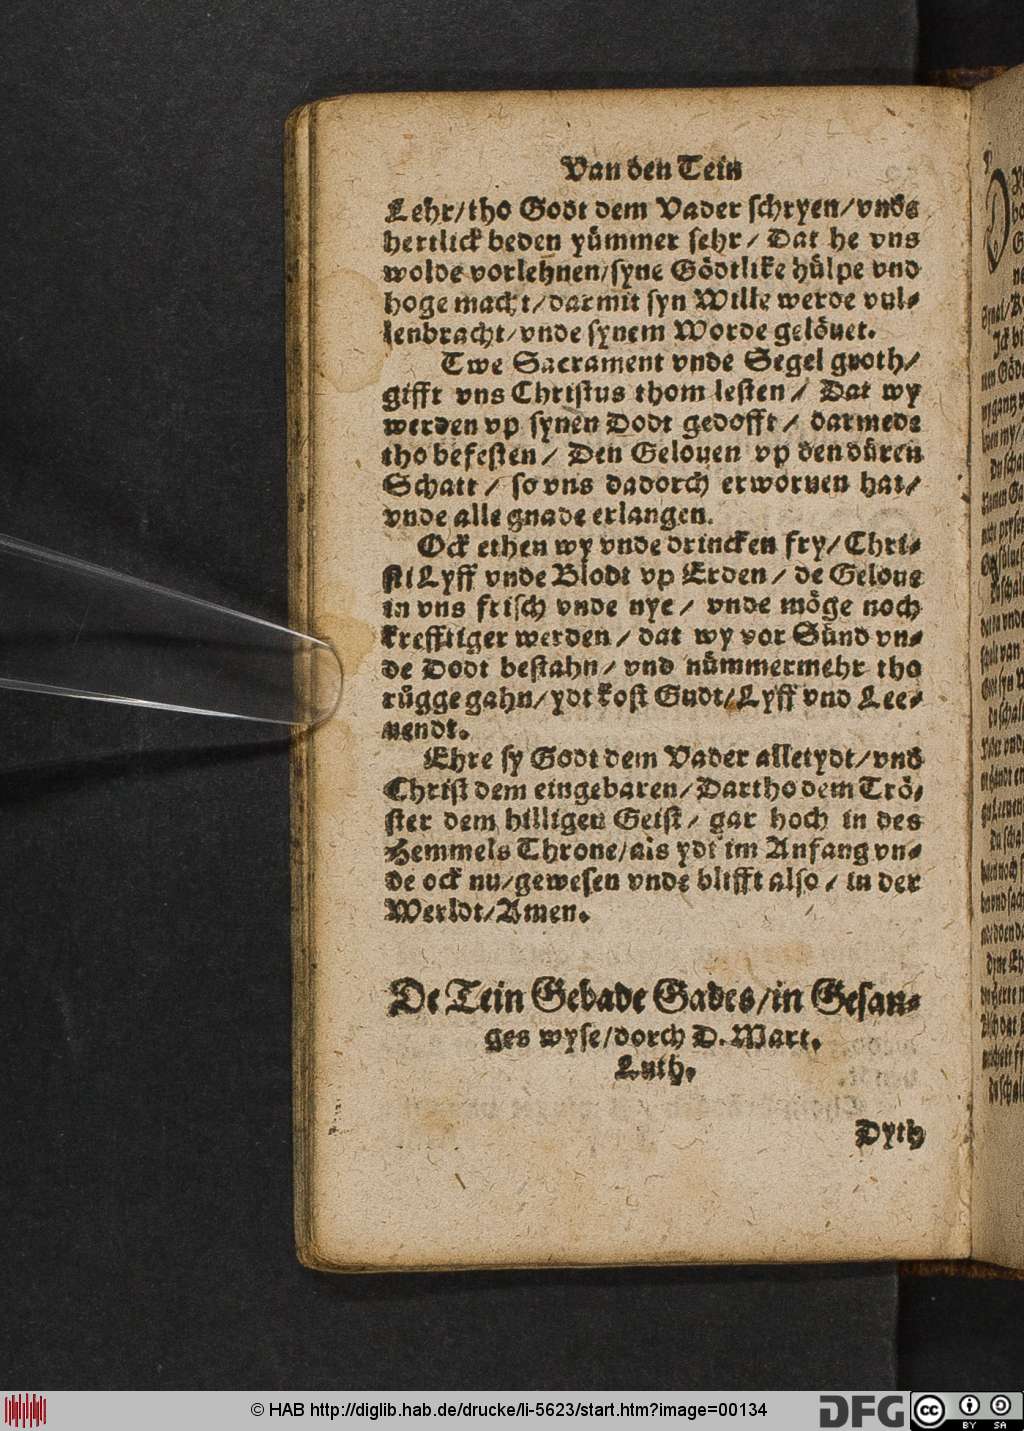 Van den Tein
Lehr/tho Godt dem Vader schryen/vnde
hertlick beden yümmer sehr/ Dat he vns
wolde vorlehnen/syne Gödtlike hülpe vnd
hoge macht/darmit syn Wille werde vul-
lenbracht/vnde synem Worde gelövet.
Twe Sacrament vnde Segel groth/
gifft vns Christus thom lesten/ Dat wy
werden vp synen Dodt gedofft/ darmede
tho befesten/ Den Gelouen vp den düren
Schatt/ so vns dadorch erworuen hat/
vnde alle gnade erlangen.
Ock ethen wy vnde drincken fry/Chri-
sti Lyff vnde Blodt vp Erden/ de Geloue
in vns frisch vnde nye/ vnde möge noch
krefftiger werden/ dat wy vor Sünd vn-
de Dodt bestahn/ vnd nümmermehr tho
rügge gahn/ydt kost Gudt/Lyff vnd Lee-
uendt.
Ehre sy Godt dem Vader alletydt/vnd
Christ dem eingebaren/Dartho dem Trö-
ster dem hilligen Geist/ gar hoch in des
Hemmels Throne/als ydt im Anfang vn-
de ock nu/gewesen vnde blifft also/ in der
Werldt/Amen.
De Tein Gebade Gades/in Gesan-
ges wyse/dorch D. Mart.
Luth.
Dyth
© HAB http://diglib.hab.de/drucke/li-5623/start.htm?image=00134
DFG
cc BY SA